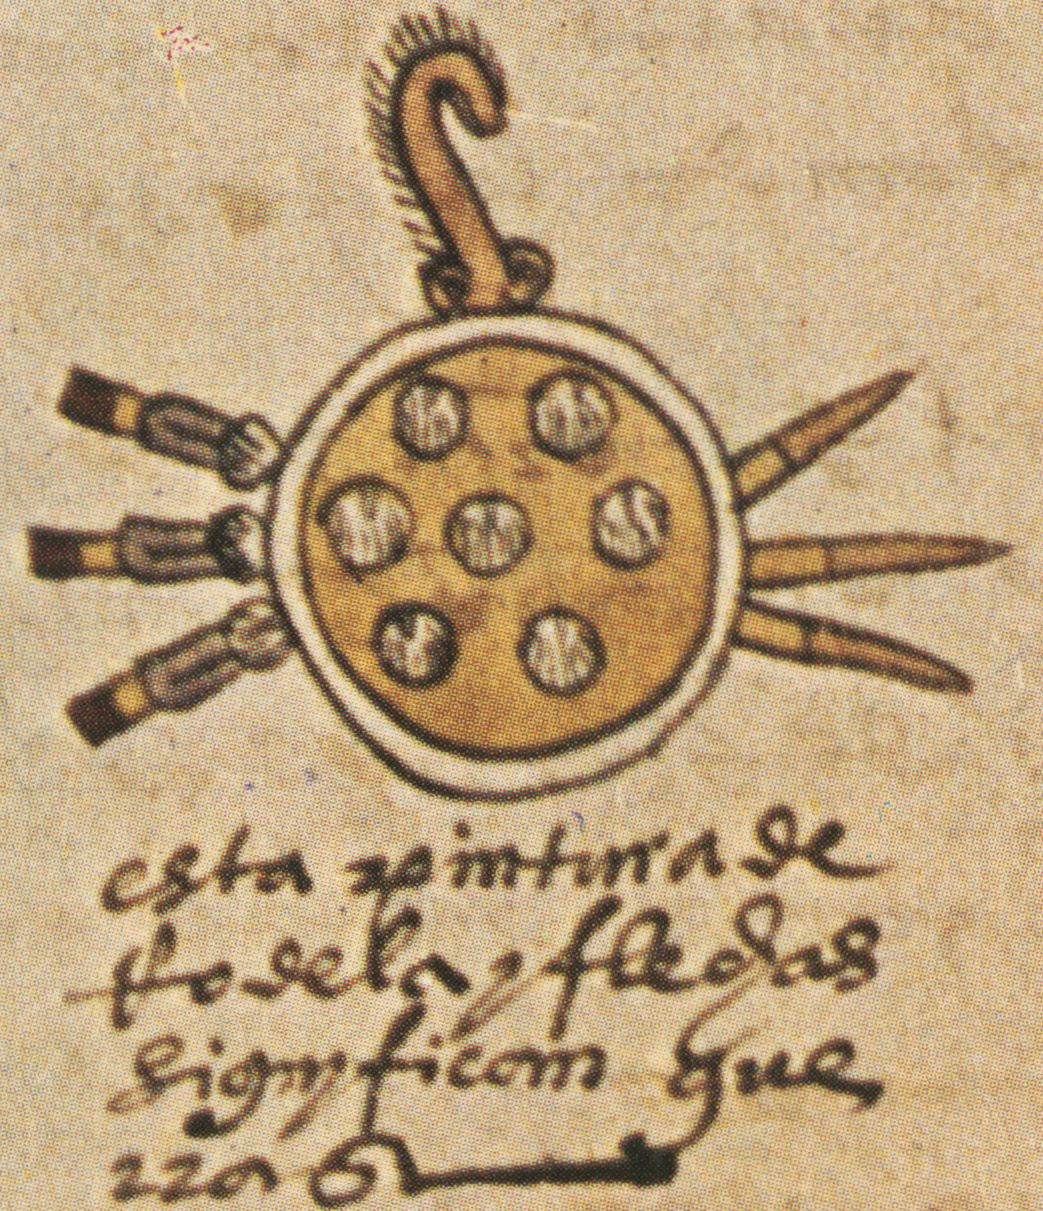 esta pintura de
rodela y flechas
significan gue
rra